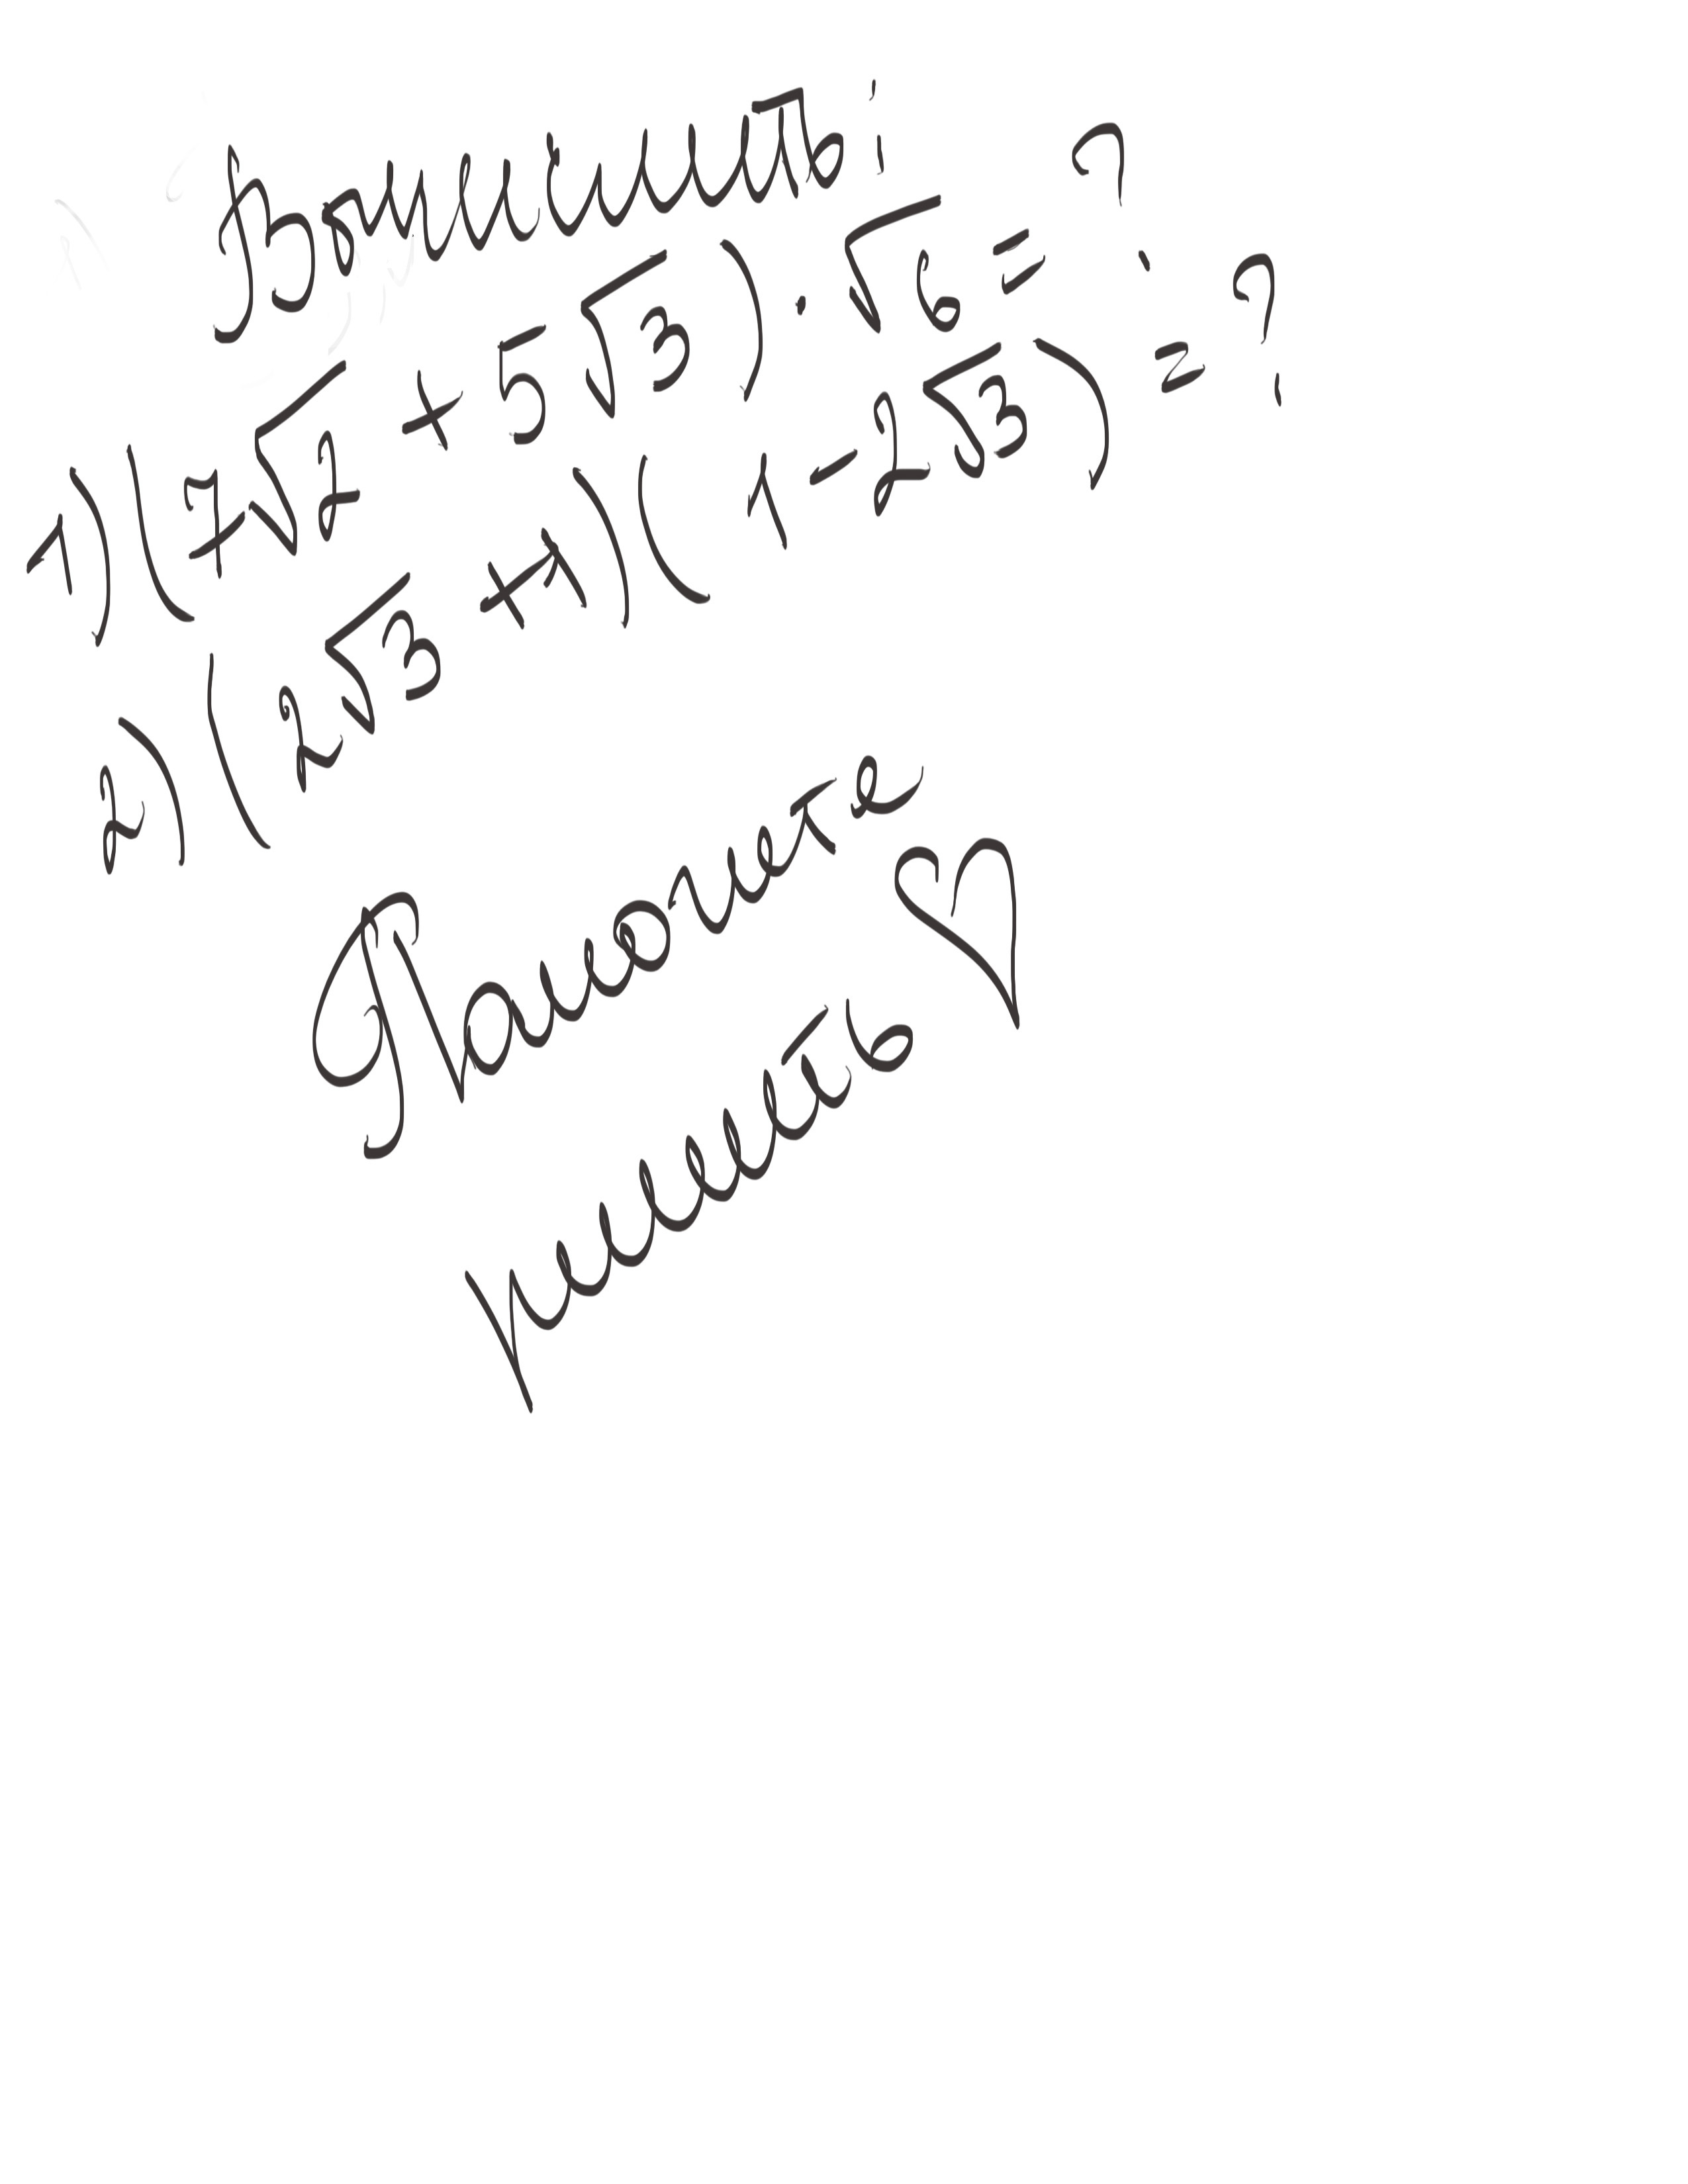 Вычислить:
1) (7√2 + 5√3) · √6 = ?
2) (2√3 + 1)(1 - 2√3) = ?
Помогите
решить